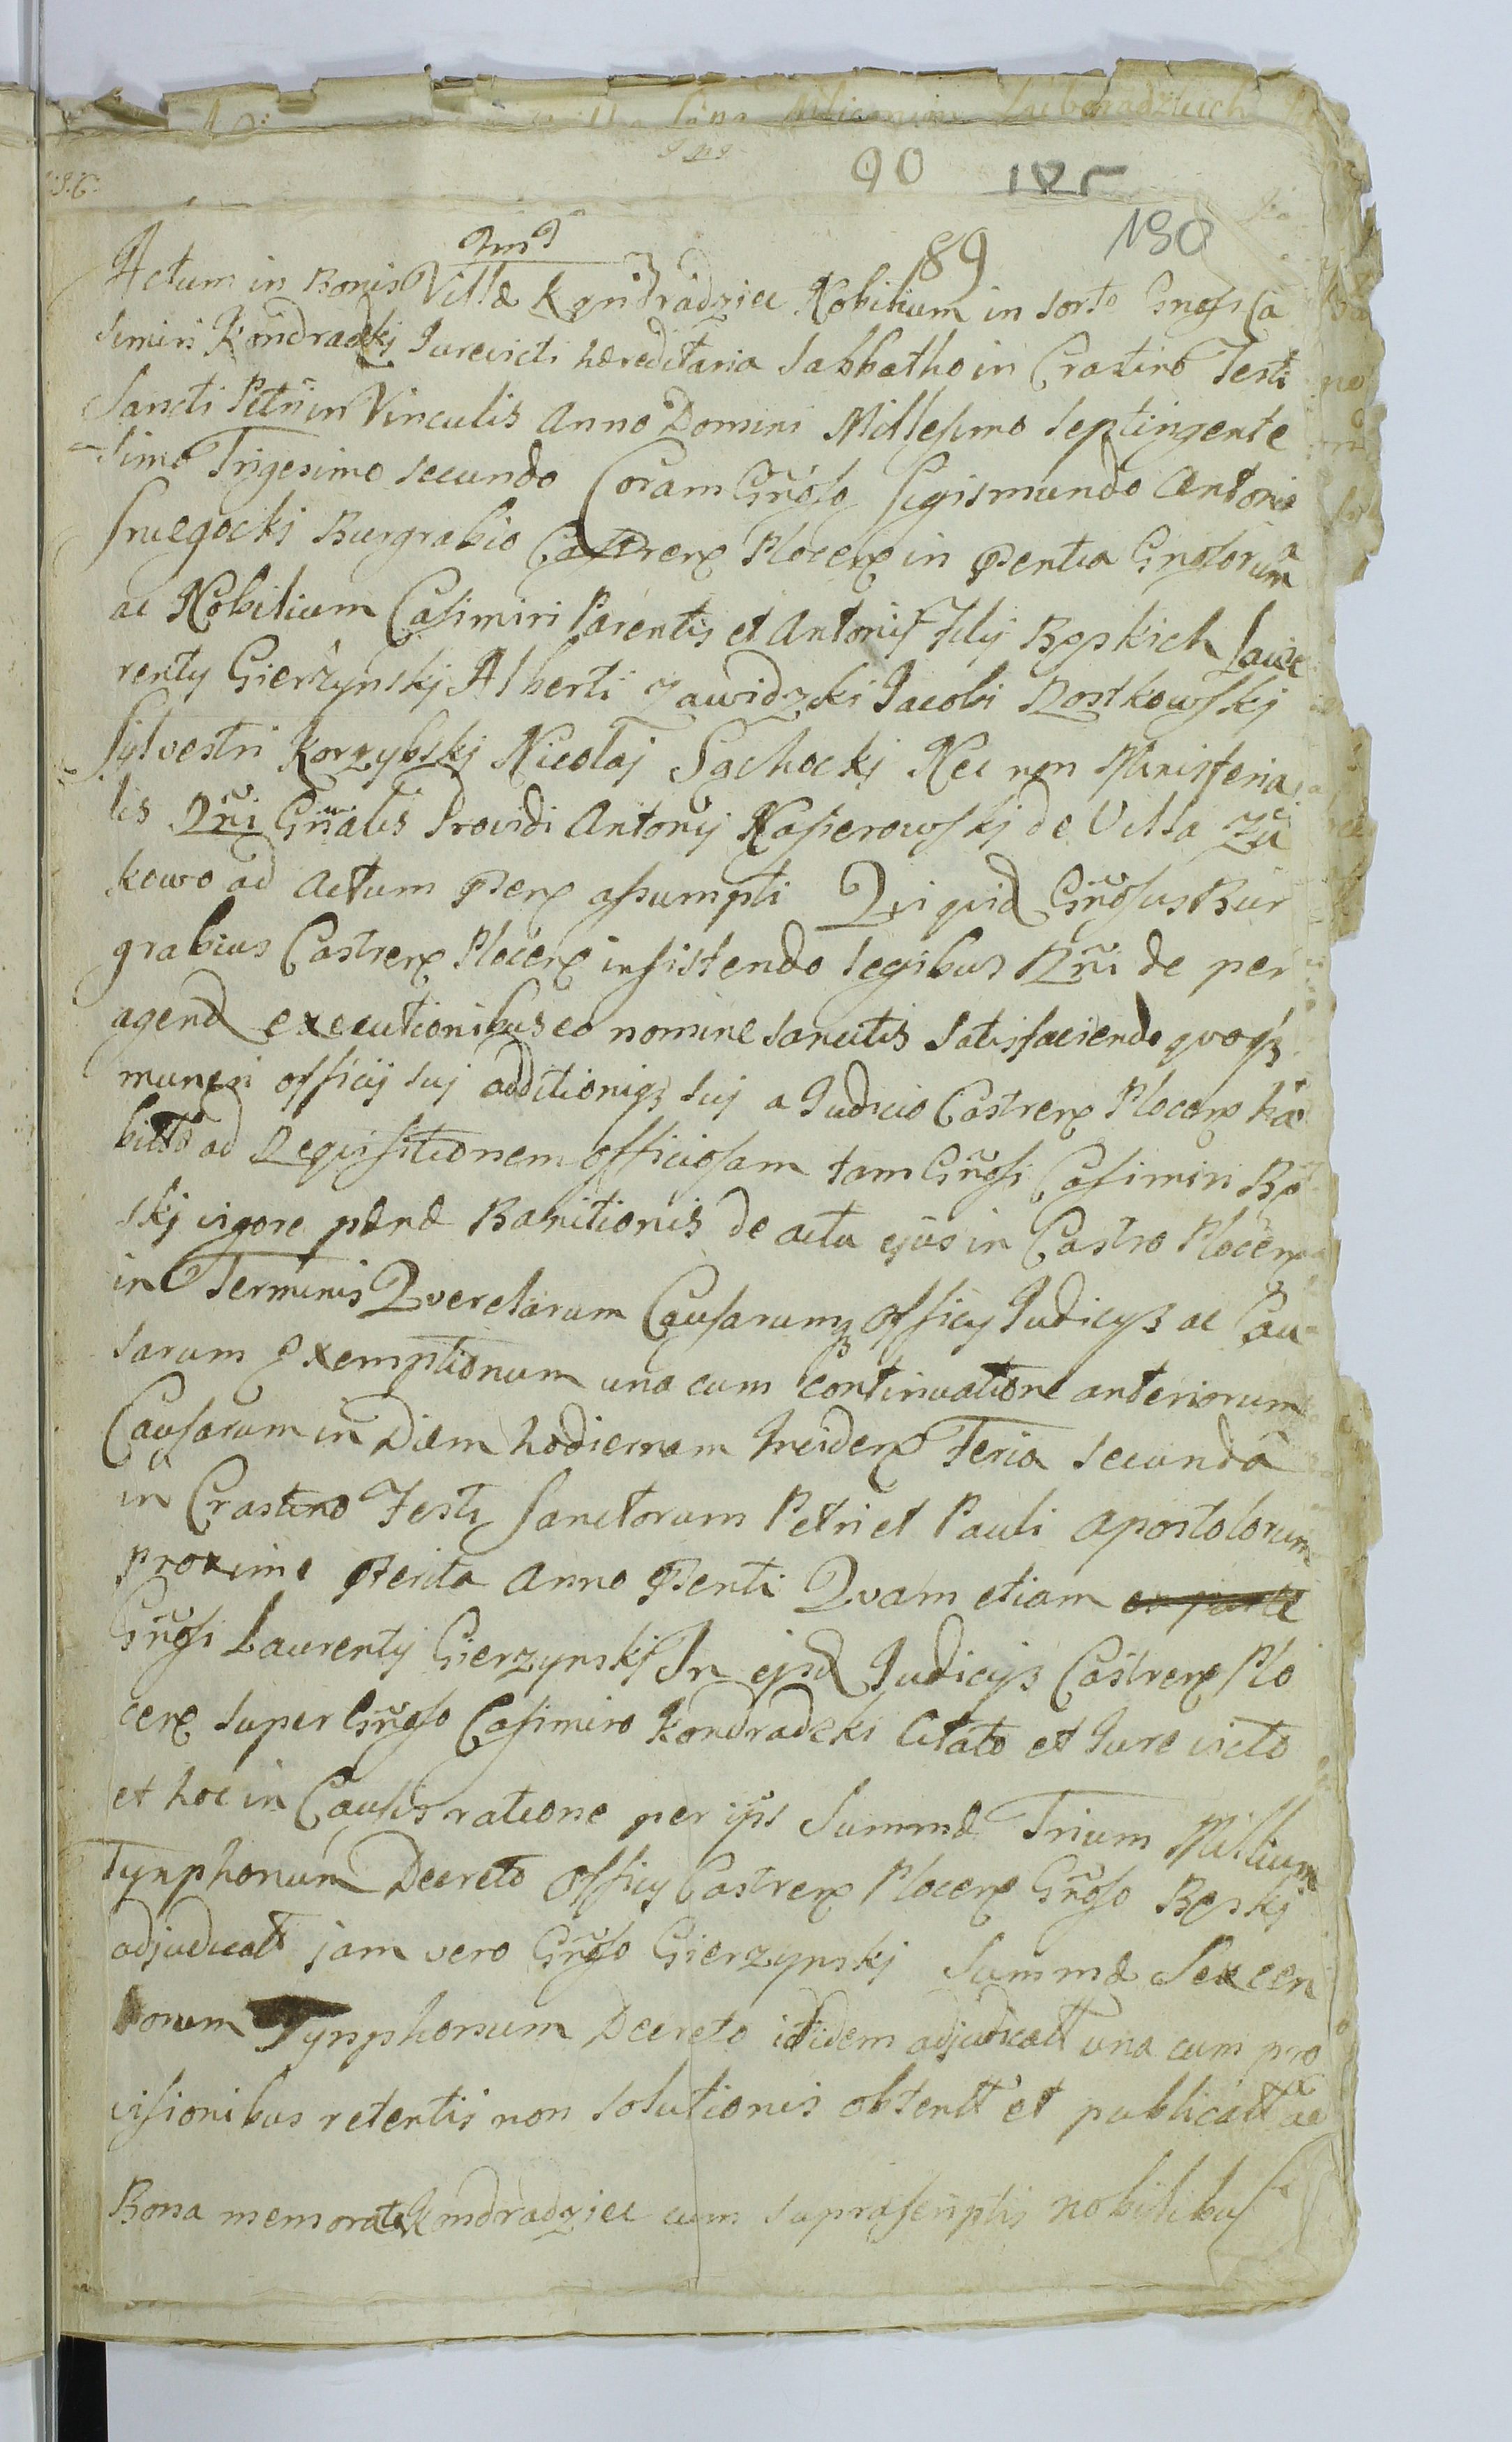 90
89
190
Actum in Bonis Villæ Kondradziec Nobilium in sorte Gnosi Ca
simiri Kondradzkj Jurevicti hæreditaria Sabbatho in Crastino Festi
Sancti Petri in Vinculis Anno Domini Millesimo Septingente
simo Trigesimo secundo Coram Gnoso Sigismundo Antonio
Sniegockj Burgrabio Castren Plocen in Pentia Gnosorum
ac Nobilium Casimiri Parentis et Antonij Filij Bęskich Law
renty Gierzynskj Alberti Zawidzkj Jacobi Rostkowskj
Sylvestri Korzybskj Nicolaj Sąchockj Nec non Ministeria
lis Rni Gnalis Providi Antonij Kasperowskj de Villa Zu
kowo ad Actum Pens assumpti Qui quid Gnosus Bur
grabius Castren Plocen insistendo legibus Rni de per
agend executionibus eo nomine sancitis Satisfaciendo quoqз
muneri officij suj additioniqз suj a Judicio Castren Plocen ha
bitto ad Requisitionem officiosam tam Gnosi Casimiri Bę
skj vigore pænæ Banitionis de actu ejus in Castro Plocen
in Terminis Querelarum Causarumqз Officij Judicijs ac Cau
sarum Exemptionum una cum Continuatione anteriorum
Causarum in Diem hodiernam Inciden Feria secunda
in Crastino Festi Sanctorum Petri et Pauli Apostolorum
proxime Pterita Anno Penti Quam etiam ex parte
Gnosi Laurentij Gierzynskj In ejsd Judicijs Castren Plo
cen super Gnoso Casimiro Kondradzki Citato et Jure victo
et hoc in Causis ratione per ips Summæ Trium Millium
Tynphonum Decreto Officij Castren Plocen Gnoso Bęskj
adjudicatt jam vero Gnoso Gierzynskj Summæ Sexcen
torum Tynphonum Decreto ibidem adjudicatt una cum pro
visionibus retentis non solutionis obtentt et publicatt ac
Bona memorata Kondradziec cum suprascriptis nobilibus